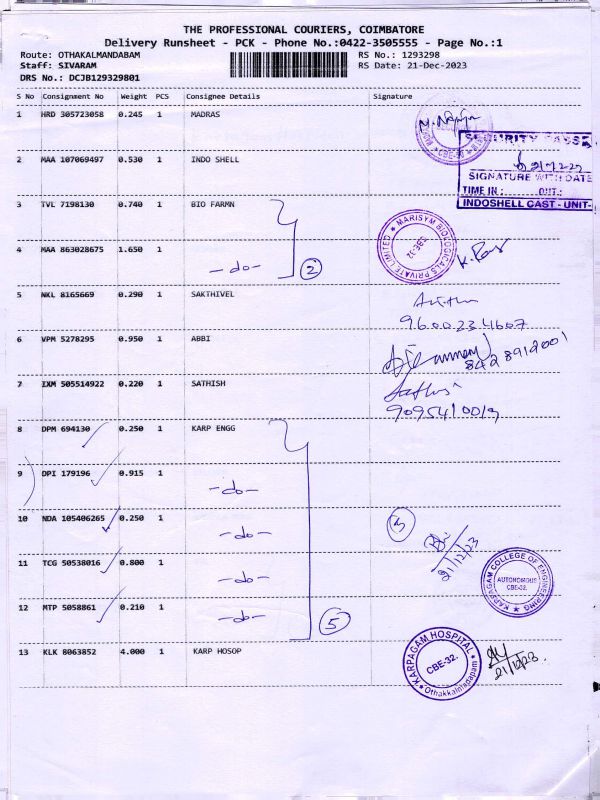 THE PROFESSIONAL COURIERS, COIMBATORE
Delivery Runsheet - PCK - Phone No.:0422-3505555 - Page No.:1
Route: OTHAKALMANDABAM RS No.: 1293298
Staff: SIVARAM RS Date: 21-Dec-2023
DRS No.: DCJB129329801
S No Consignment No Weight PCS Consignee Details Signature
1 HRD 305723058 0.245 1 MADRAS
CBE-32
SECURITY
2 MAA 107069497 0.530 1 INDO SHELL
SIGNATURE WITH DATE
TIME IN: OUT.:
INDOSHELL CAST - UNIT-
3 TVL 7198130 0.740 1 BIO FARMN
MARISYM BIOLOGICALS PRIVATE LIMITED
CBE-32
4 MAA 863028675 1.650 1
-do- 2
5 NKL 8165669 0.290 1 SAKTHIVEL
9600234607
6 VPM 5278295 0.950 1 ABBI
8428912001
7 IXM 505514922 0.220 1 SATHISH
Sathis
9095410019
8 DPM 694130 0.250 1 KARP ENGG
9 DPI 179196 0.915 1
-do-
10 NDA 105406265 0.250 1
-do- 5
21/12/23
11 TCG 50538016 0.800 1
-do-
KARPAGAM COLLEGE OF ENGINEERING
AUTONOMOUS
CBE-32.
12 MTP 5058861 0.210 1
-do- 5
13 KLK 8063852 4.000 1 KARP HOSOP
KARPAGAM HOSPITAL
CBE-32.
Othakkalmadapam
21/12/23.